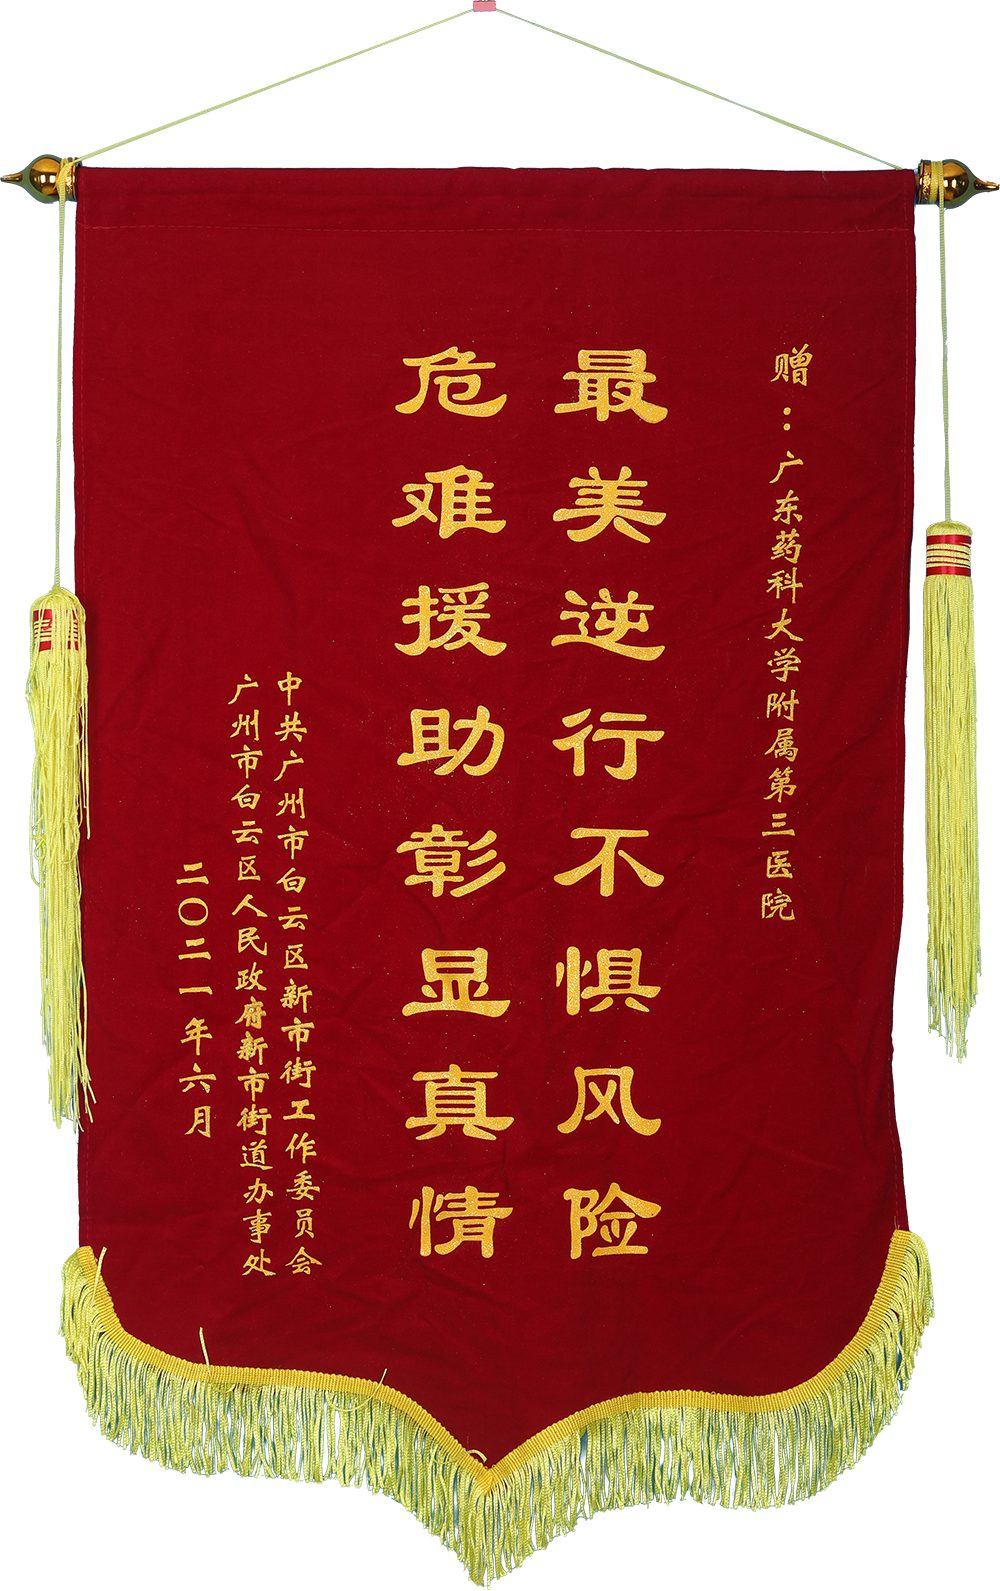 赠：广东药科大学附属第三医院
最美逆行不惧风险
危难援助彰显真情
中共广州市白云区新市街工作委员会
广州市白云区人民政府新市街道办事处
二〇二一年六月